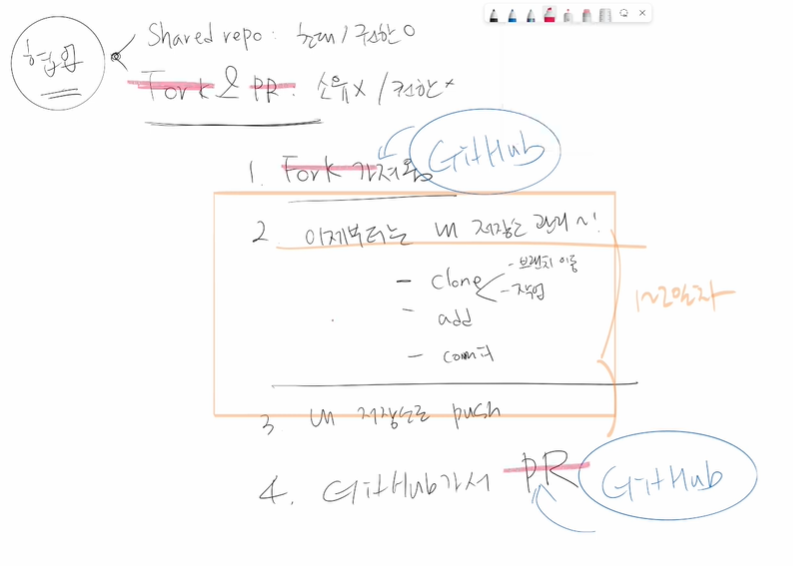 협업
Shared repo : 초대 / 권한 O
Fork & PR : 소유 X / 권한 X
1. Fork 가져옴
GitHub
2 이제부터는 내 저장소 관리~!
- clone
- 브랜치 이동
- 작업
- add
- commit
1~2일차
3 내 저장소로 push
4. GitHub가서 PR
GitHub